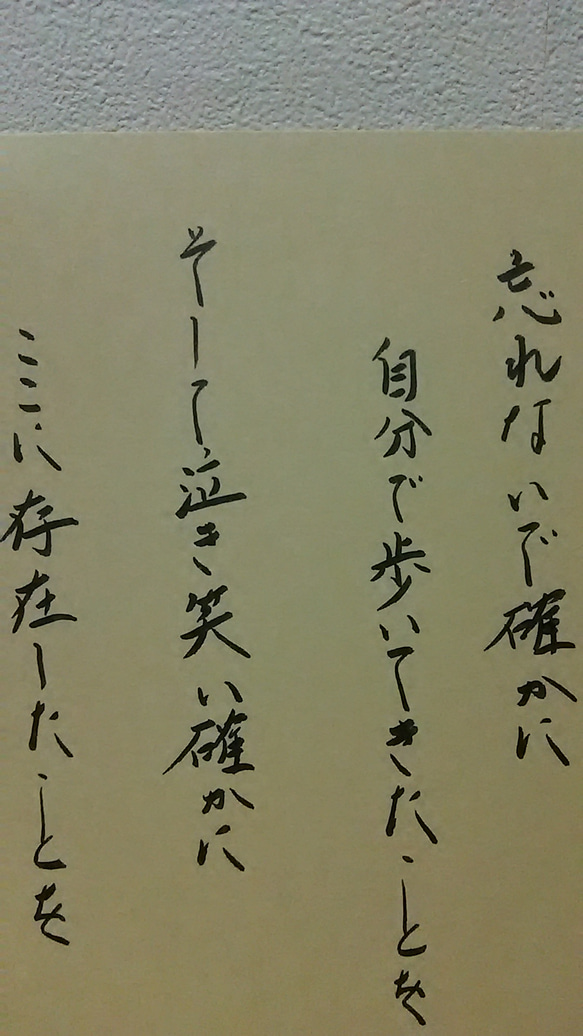 忘れないで確かに
自分で歩いてきたことを
そして泣き笑い確かに
ここに存在したことを